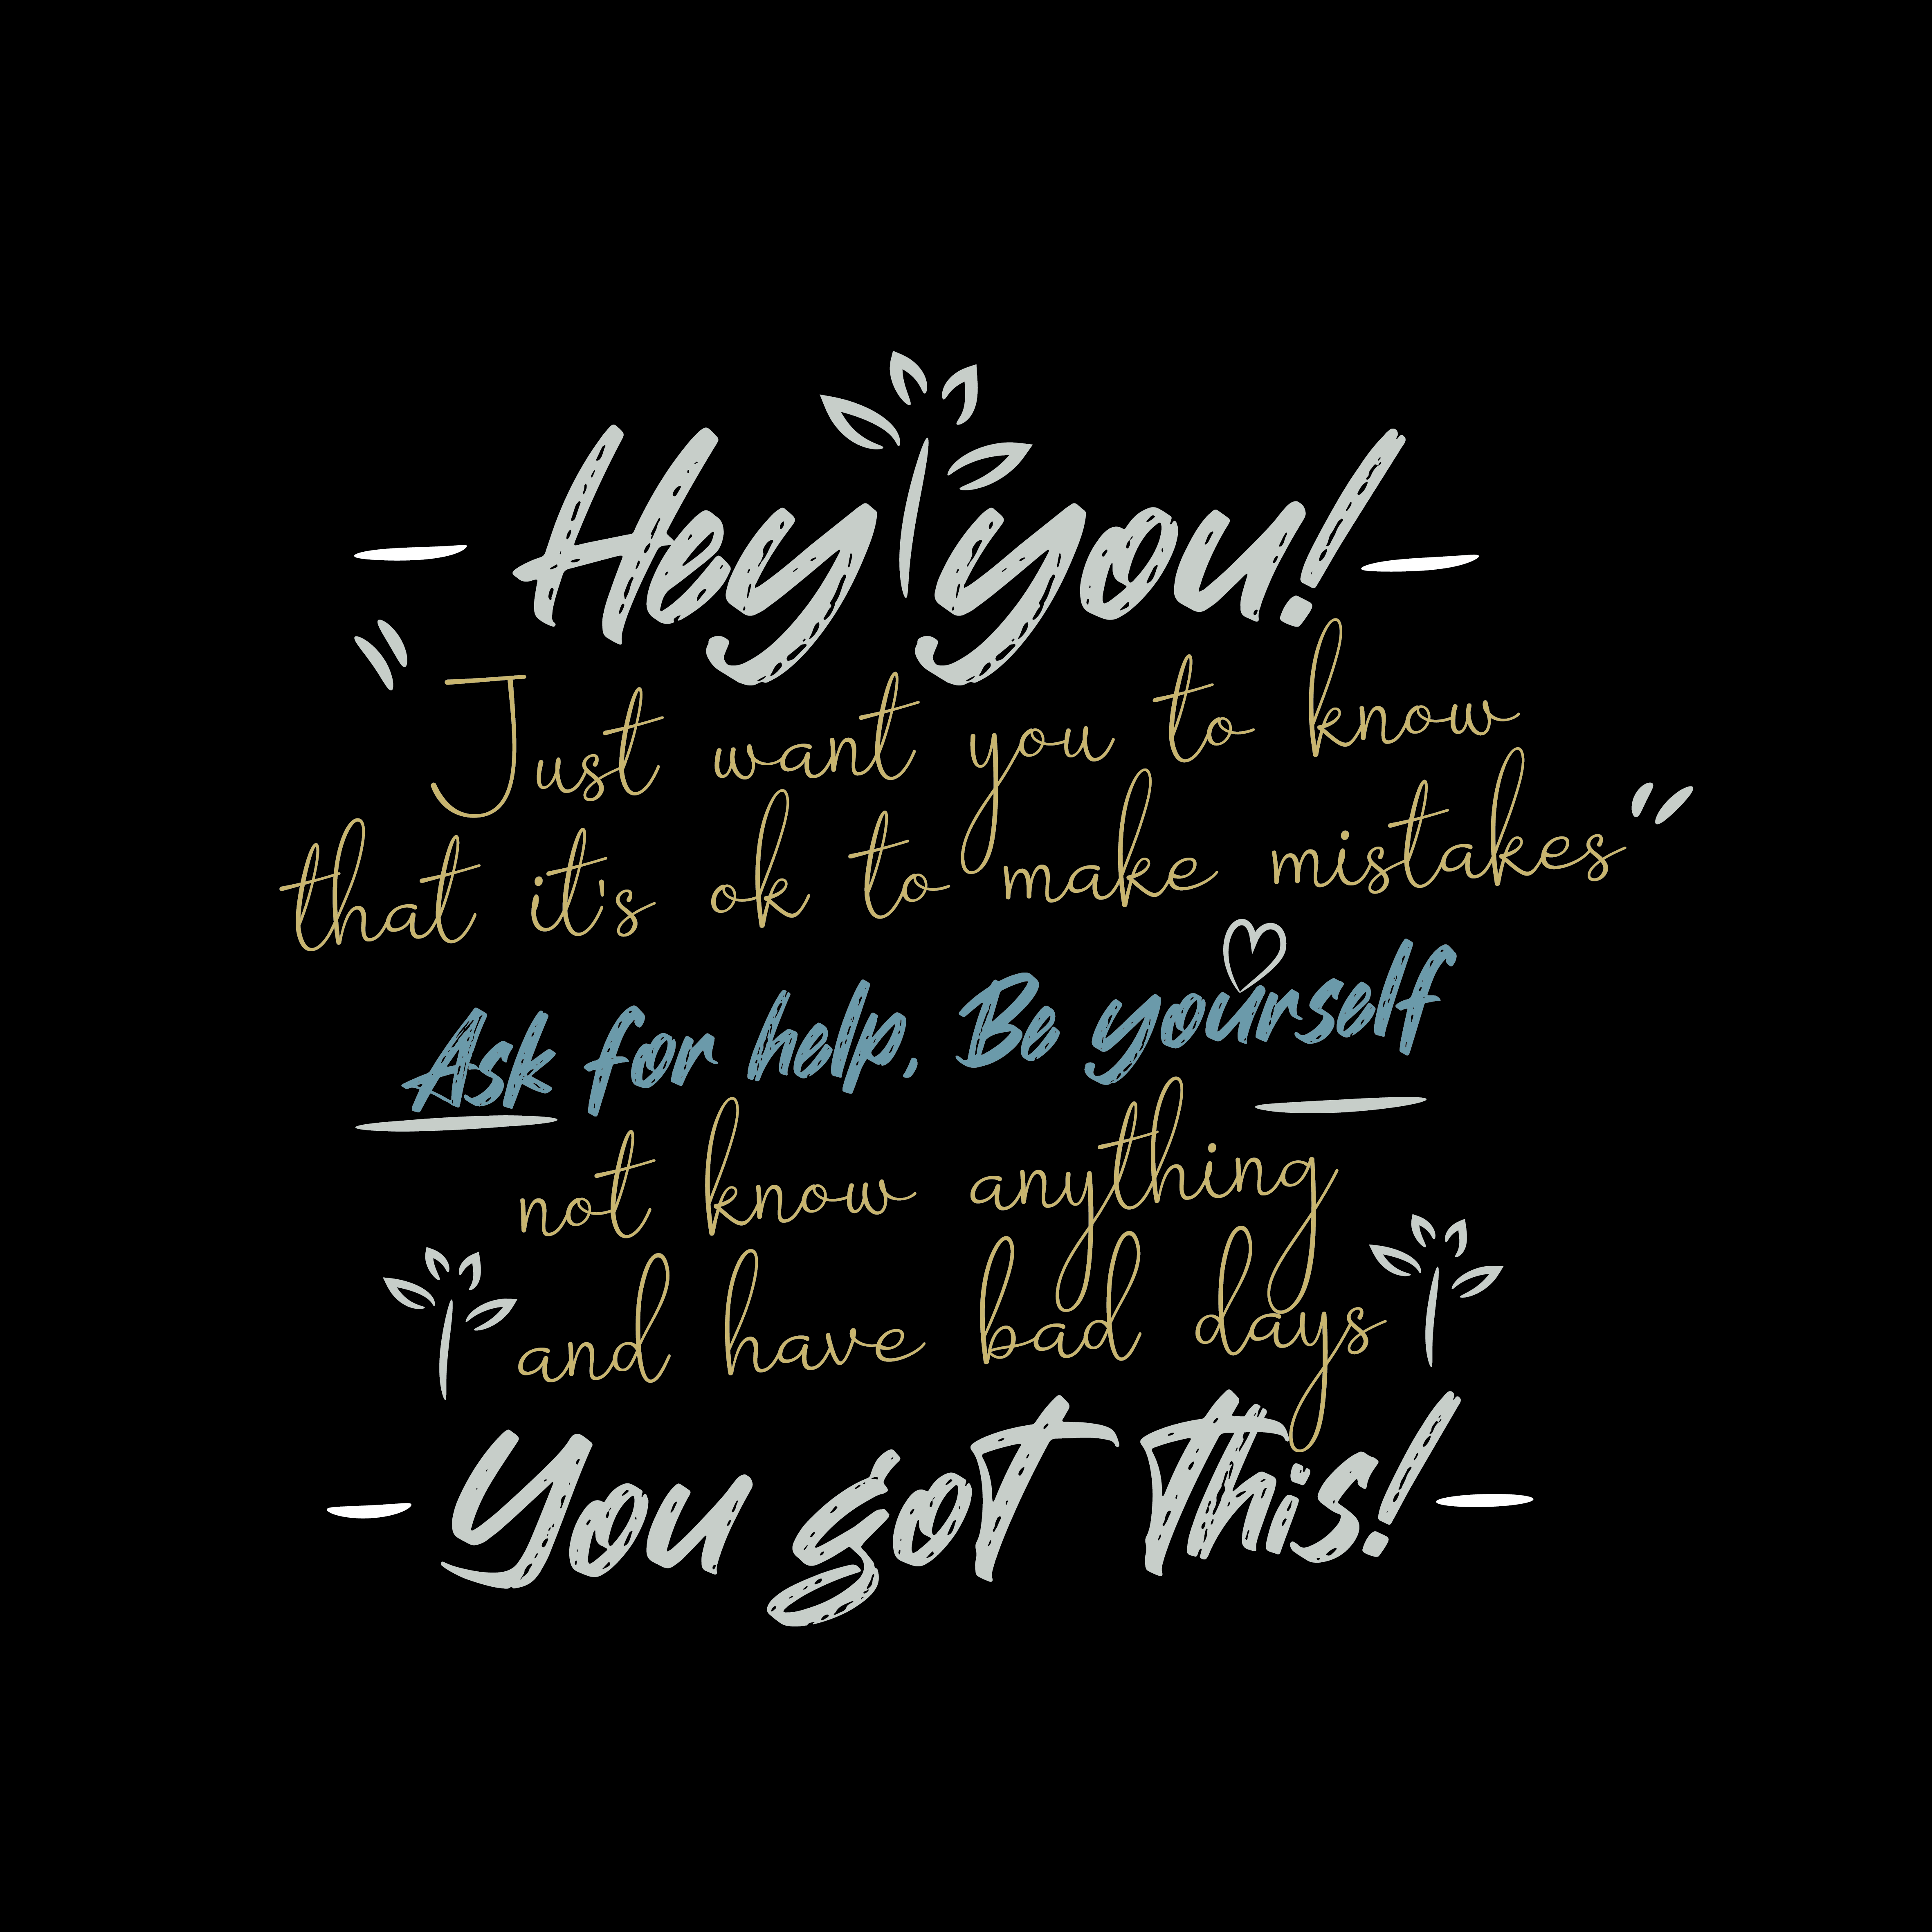 Hey you!
"Just want you to know
that it's ok to make mistakes"
Ask for help, Be yourself
not know anything
and have bad days
You got This!